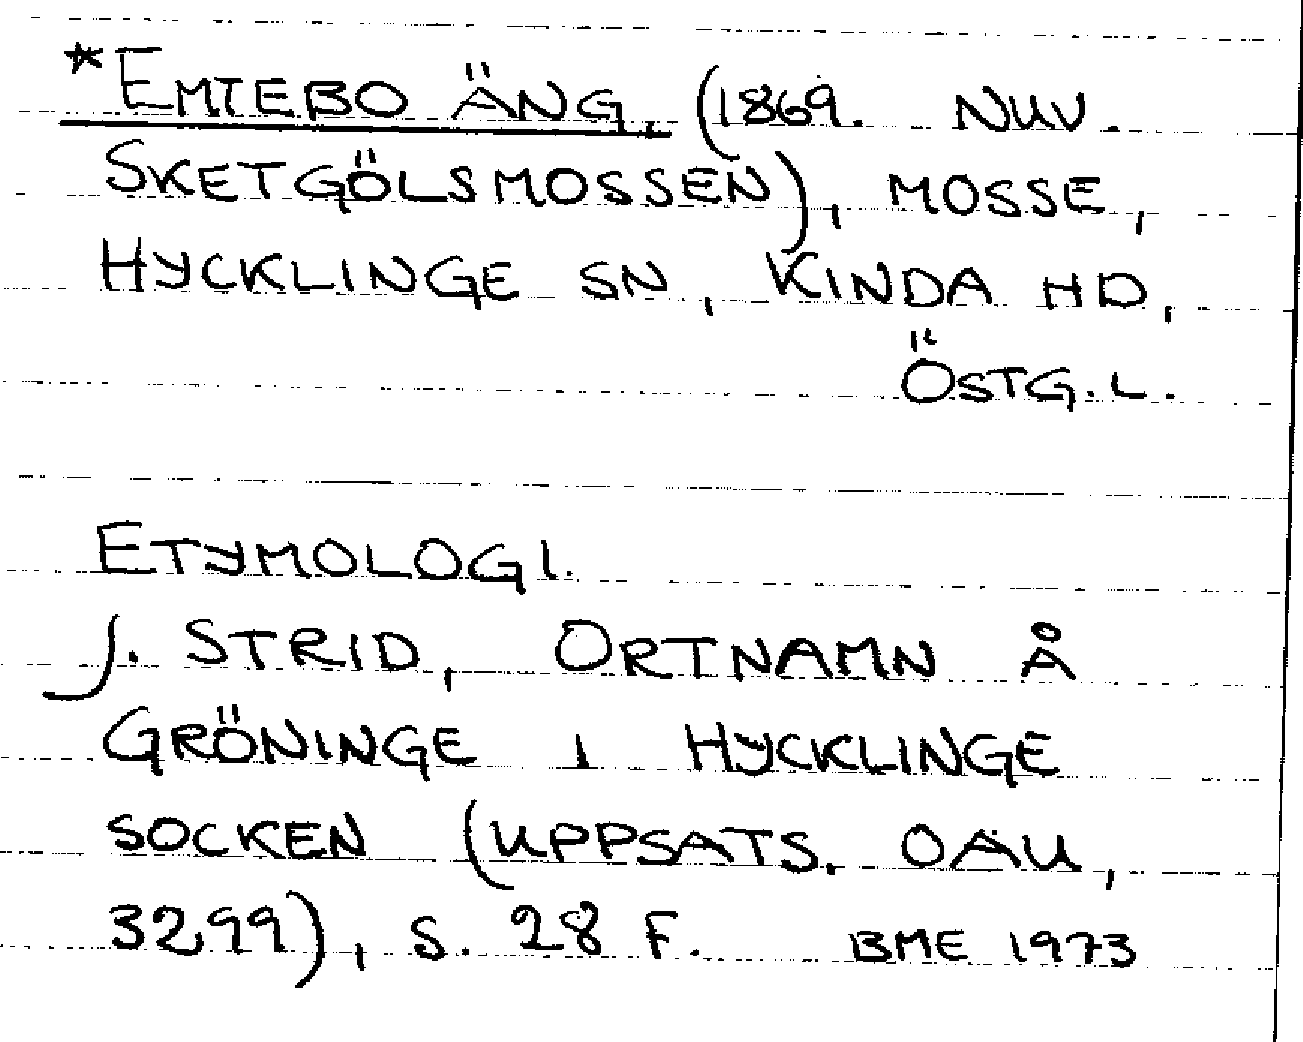 *EMTEBO ÄNG. (1869. NUV.
SKETGÖLSMOSSEN), MOSSE,
HYCKLINGE SN, KINDA HD,
ÖSTG.L.
ETYMOLOGI.
J. STRID, ORTNAMN Å
GRÖNINGE I HYCKLINGE
SOCKEN (UPPSATS. OAU,
3299), S. 28 F. BME 1973